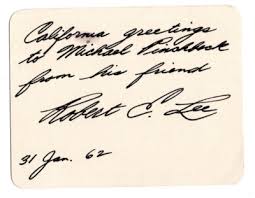 California greetings
to Michael Pinchbeck
from his friend
Robert E. Lee
31 Jan. 62